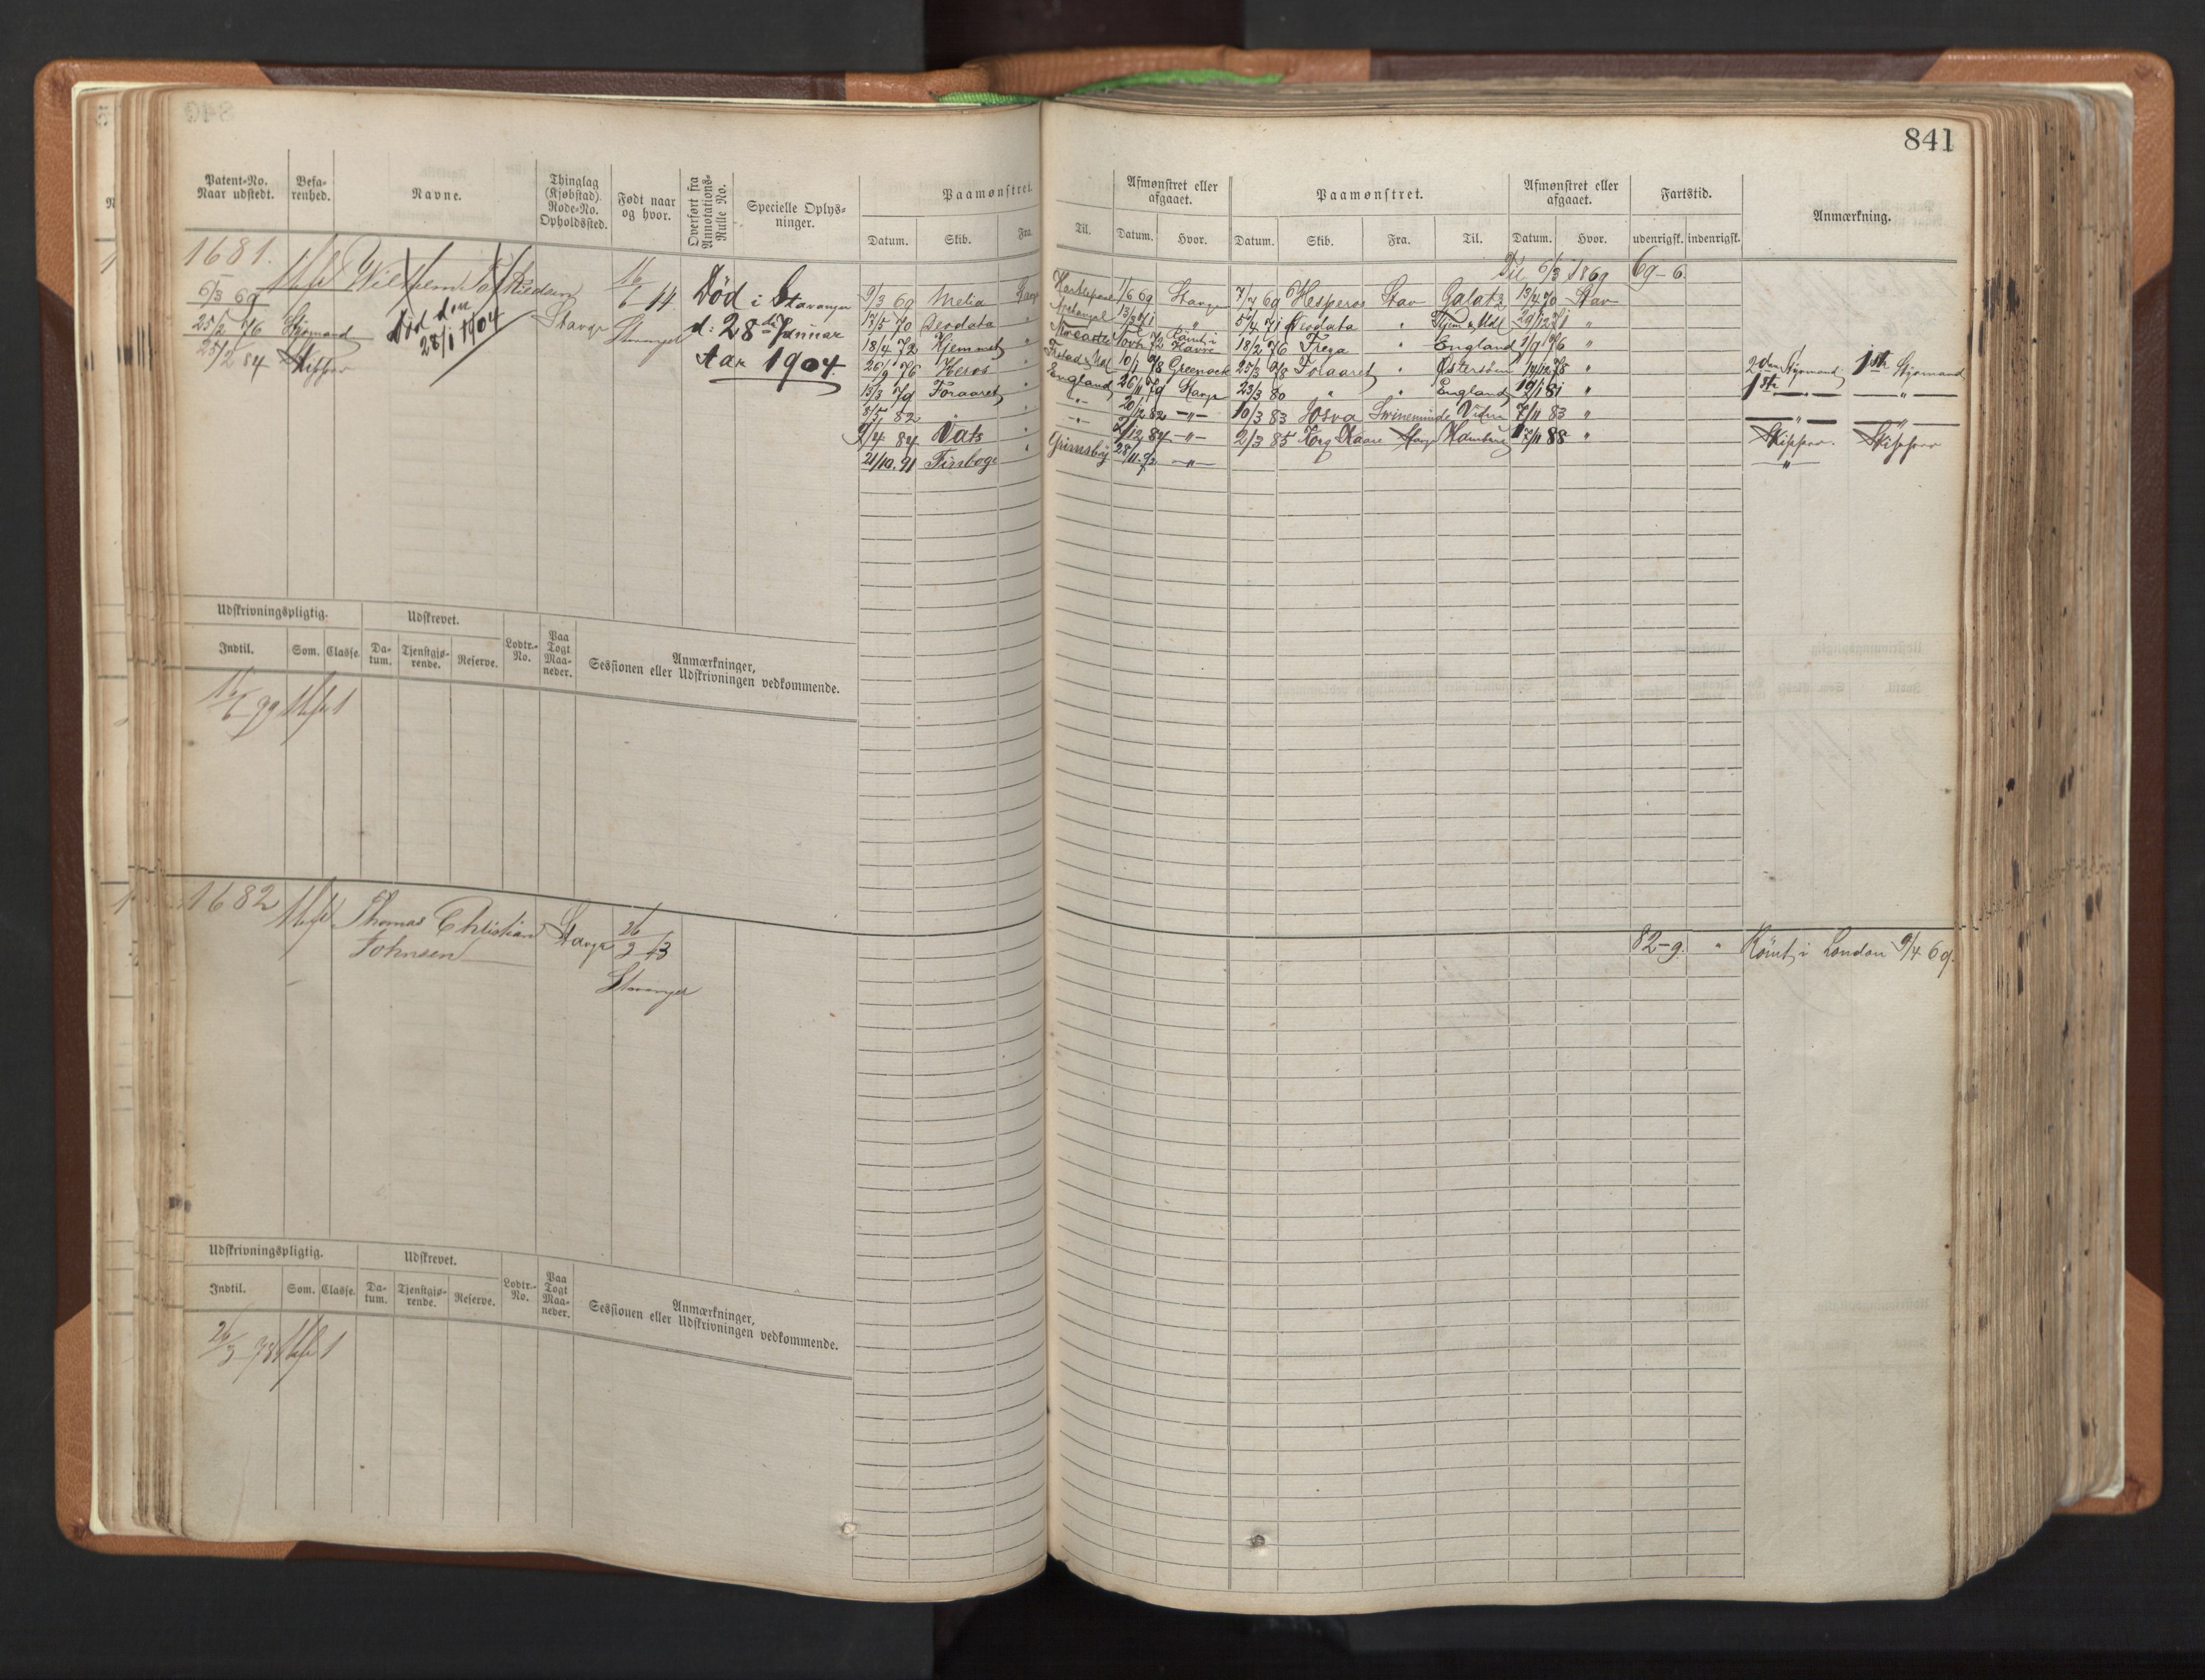 841
Patent-No. Naar udstedt.
Befarenhed.
Navne.
Thinglag (Kjøbstad). Rode-No. Opholdssted.
Født naar og hvor.
Overført fra Annotations-Rulle No.
Specielle Oplysninger.
Paamønstret.
Datum. Skib. Fra. Til.
Afmønstret eller afgaaet.
Datum. Hvor.
Paamønstret.
Datum. Skib. Fra. Til.
Afmønstret eller afgaaet.
Datum. Hvor.
Fartstid.
udenrigsk. indenrigsk.
Anmærkning.
1681.
6/3 69
25/2 76 Styrmand
25/2 84 Skipper
Wilhelm
Død den 28/1 1904
Stavgr
16/6 44
Stavanger
Død i Stavanger
d: 28de Januar
Aar 1904.
Til 6/3 1869 69-6
9/3 69 Melia Stavgr 1/6 69 Stavgr 7/7 69 Hesperos Stav Galatz 13/4 70 Stav
17/5 70 Deodata " Archangel " 5/4 71 Deodata " 29/12 71 "
18/4 72 Hjemmet " Rømt i Havre 18/2 76 Freya " England 1/9 76 "
26/9 76 Heros " 10/1 78 Greenock 25/3 78 Foraaret " Østersøen 14/12 78 " 2den Styrmand 1ste Styrmand
13/3 79 Foraaret " England 26/11 79 Stavgr 23/3 80 " " England 19/1 81 " 1ste — " —
8/5 82 " " — " — 20/12 82 — " — 10/3 83 Josva Swineminde 7/11 83 "
9/4 84 Vats " — " — 2/12 84 — " — 2/3 85 Kong Kaare Stavgr Hamburg 17/11 88 " Skipper. Skipper
21/10. 91 Finboge " Grimsby 28/11. 92 — " — "
Udskrivningspligtig. Udskrevet.
Indtil. Som. Classe. Datum. Tjenstgjørende. Reserve. Lodtr.-No. Paa Togt Maaneder.
Anmærkninger, Sessionen eller Udskrivningen vedkommende.
1682 Thomas Christian
Johnsen
Stavgr
26/3 43
Stavanger
82-9. " Rømt i London 9/4 69.
Udskrivningspligtig. Udskrevet.
Indtil. Som. Classe. Datum. Tjenstgjørende. Reserve. Lodtr.-No. Paa Togt Maaneder.
Anmærkninger, Sessionen eller Udskrivningen vedkommende.
26/3 78 1